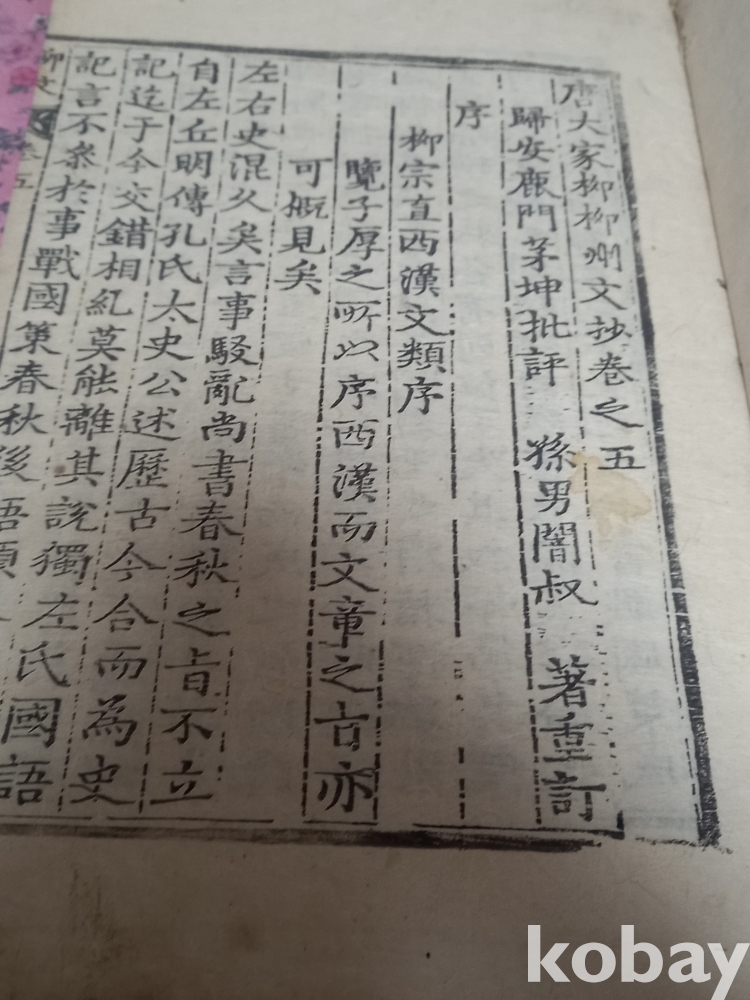 唐大家柳柳州文抄卷之五
歸安鹿門茅坤批評 孫男闇叔 著重訂
序
柳宗直西漢文類序
覽子厚之所以序西漢而文章之旨亦
可概見矣
左右史混久矣言事駁亂尚書春秋之旨不立
自左丘明傳孔氏太史公述歷古今合而為史
記迄于今交錯相糺莫能離其說獨左氏國語
記言不叅於事戰國策春秋後語頗
柳文 卷五
kobay